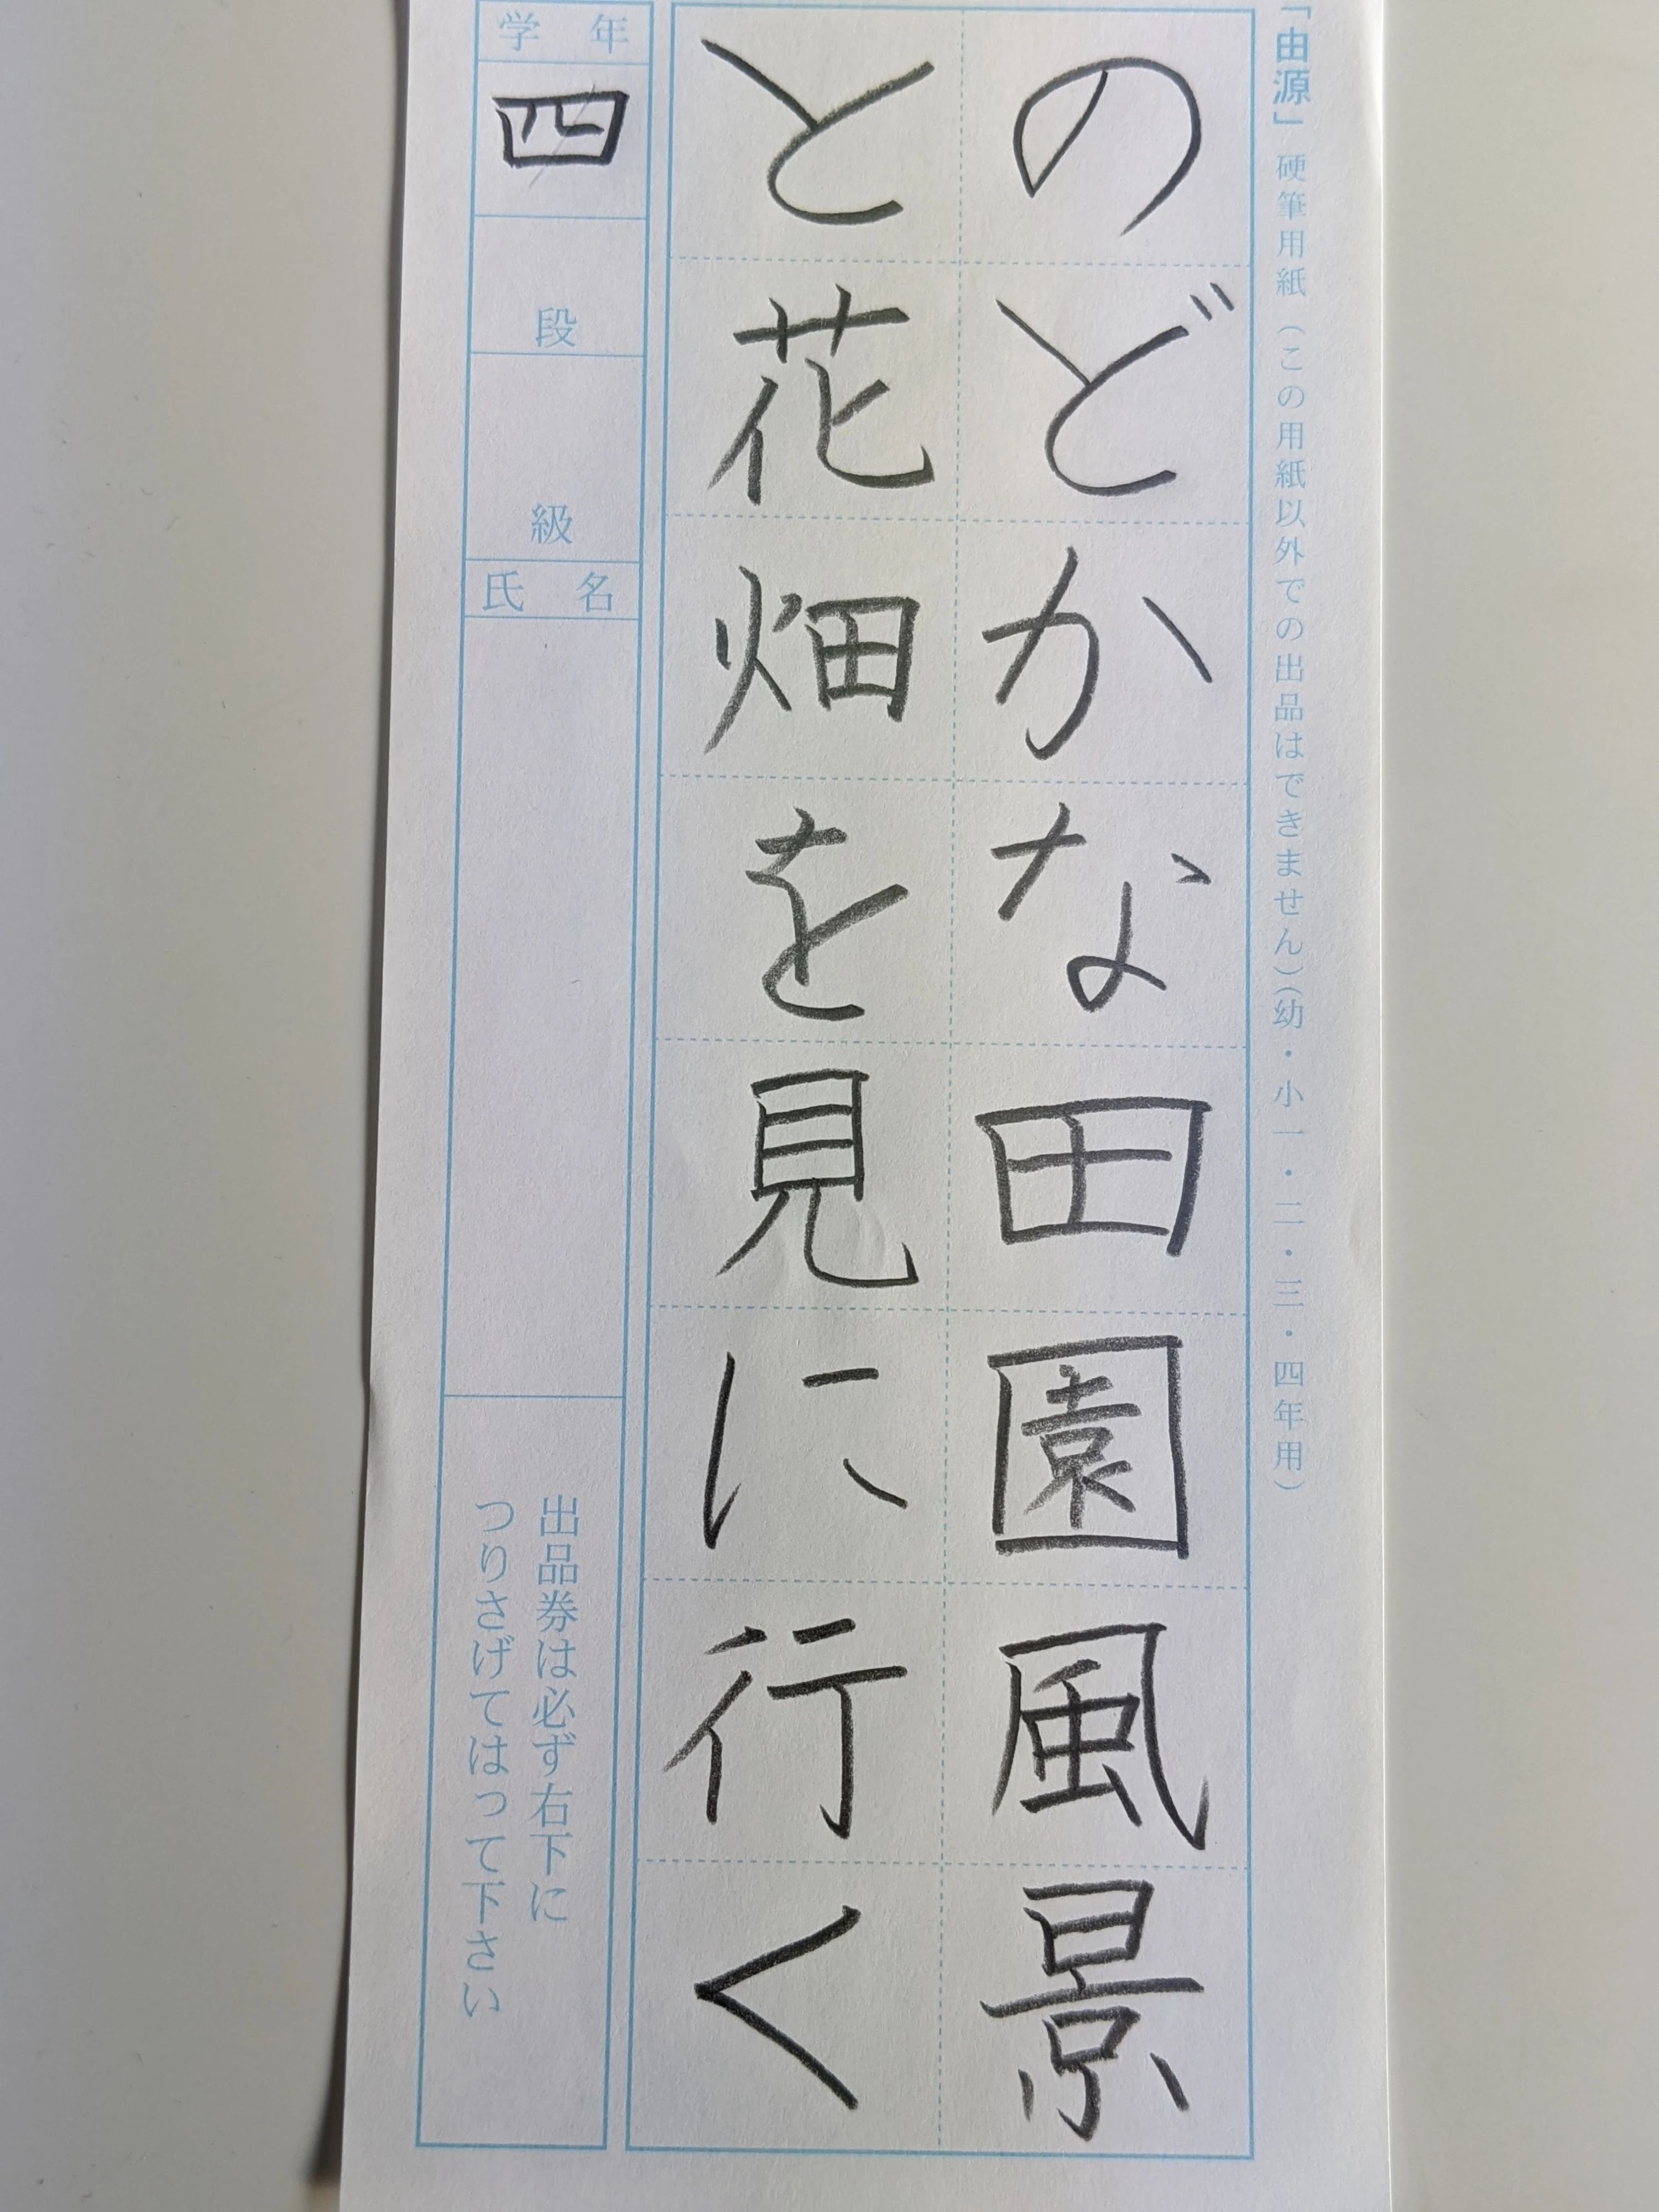 「由源」硬筆用紙(この用紙以外での出品はできません)(幼・小一・二・三・四年用)
のどかな田園風景
と花畑を見に行く
学年
四
段
級
氏名
出品券は必ず右下に
つりさげてはって下さい